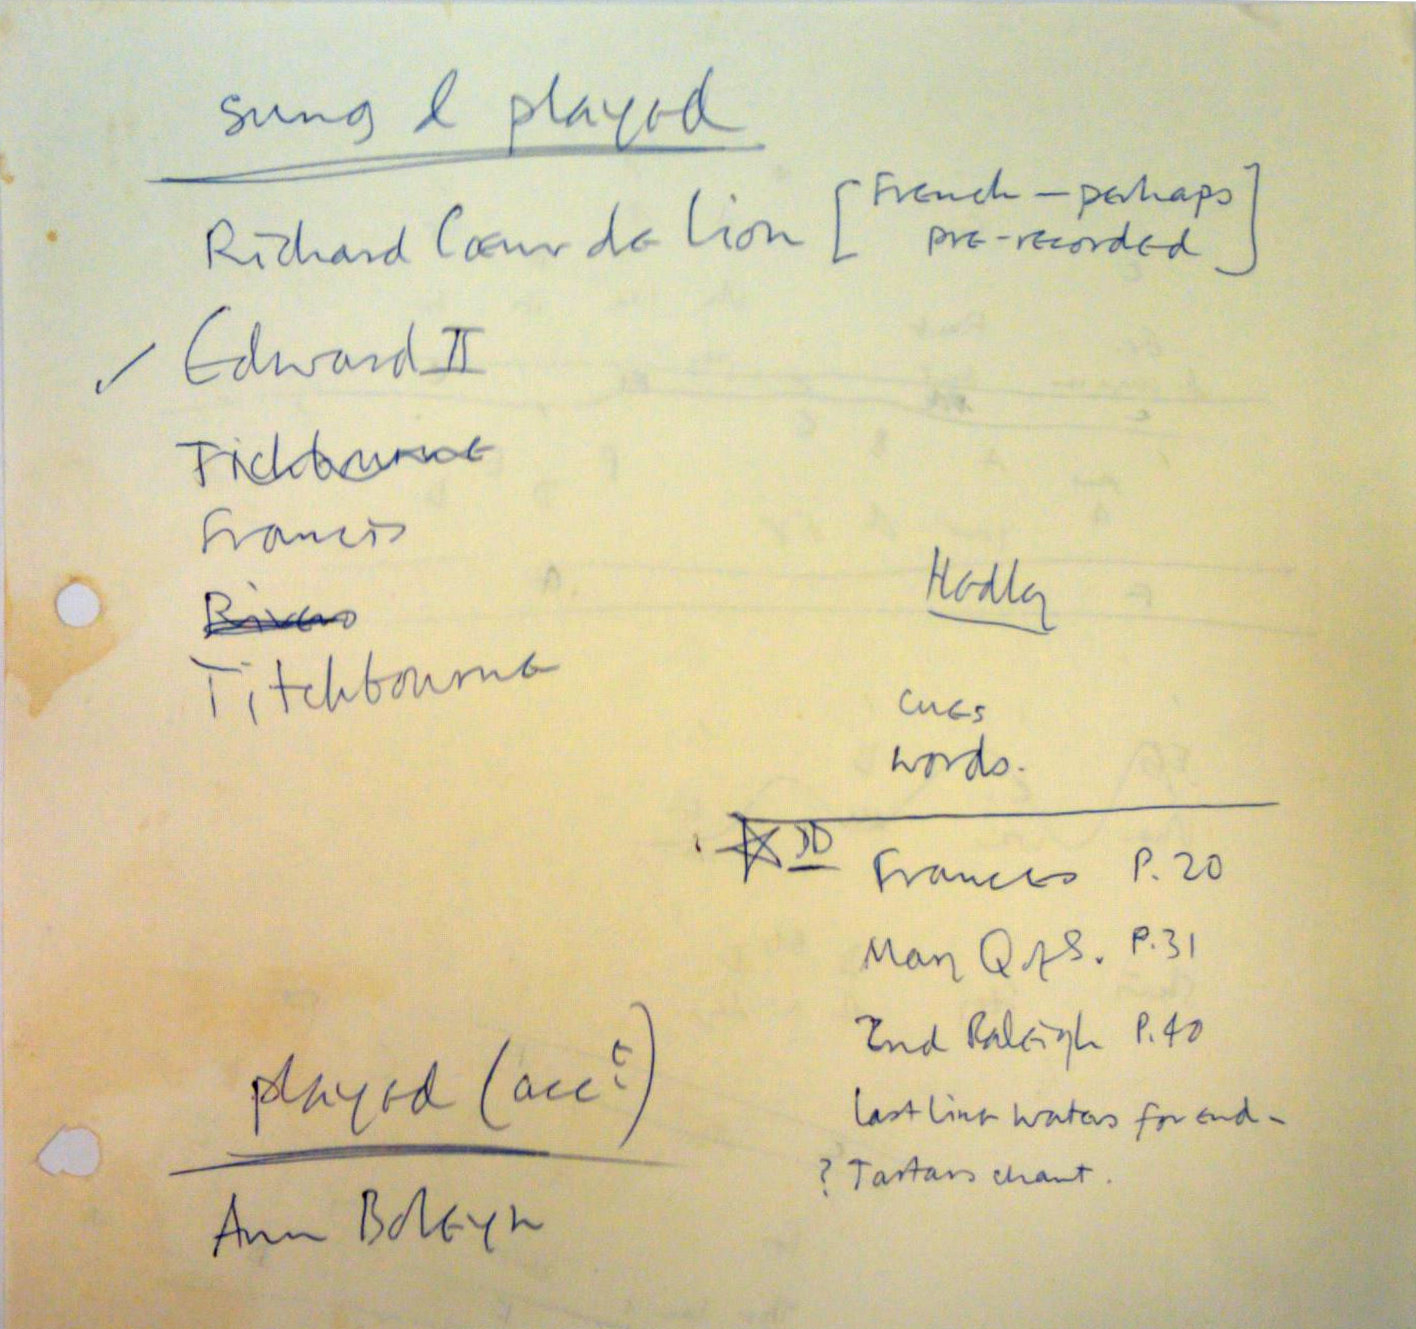 sung & played
Richard Cœur de Lion [French — perhaps
pre-recorded]
✓ Edward II
Tichbourne
Francis
Rivers
Titchbourne
Hedley
cues
words.
Frances P. 20
Mary Q of S. P. 31
2nd Raleigh P. 40
last line waters for end -
? Tartars chant.
played (acc?)
Ann Boleyn